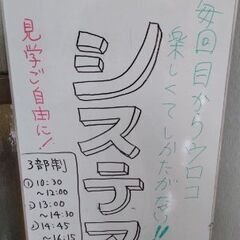 毎回目からウロコ
楽しくてしかたがない!!
システマ
見学ご自由に!
3部制
①10:30
〜12:00
②13:00
〜14:30
③14:45
〜16:15